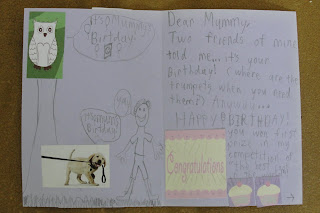 Birtday!
yay!
Happy
Birtday!
Dear Mummy,
Two friends of mine
told me... it's your
Birthday! (where are the
trumpets when you need
them?) Anyway...
HAPPY BIRTHDAY!
you won first
prize in my
competition of
the best
Congratulations